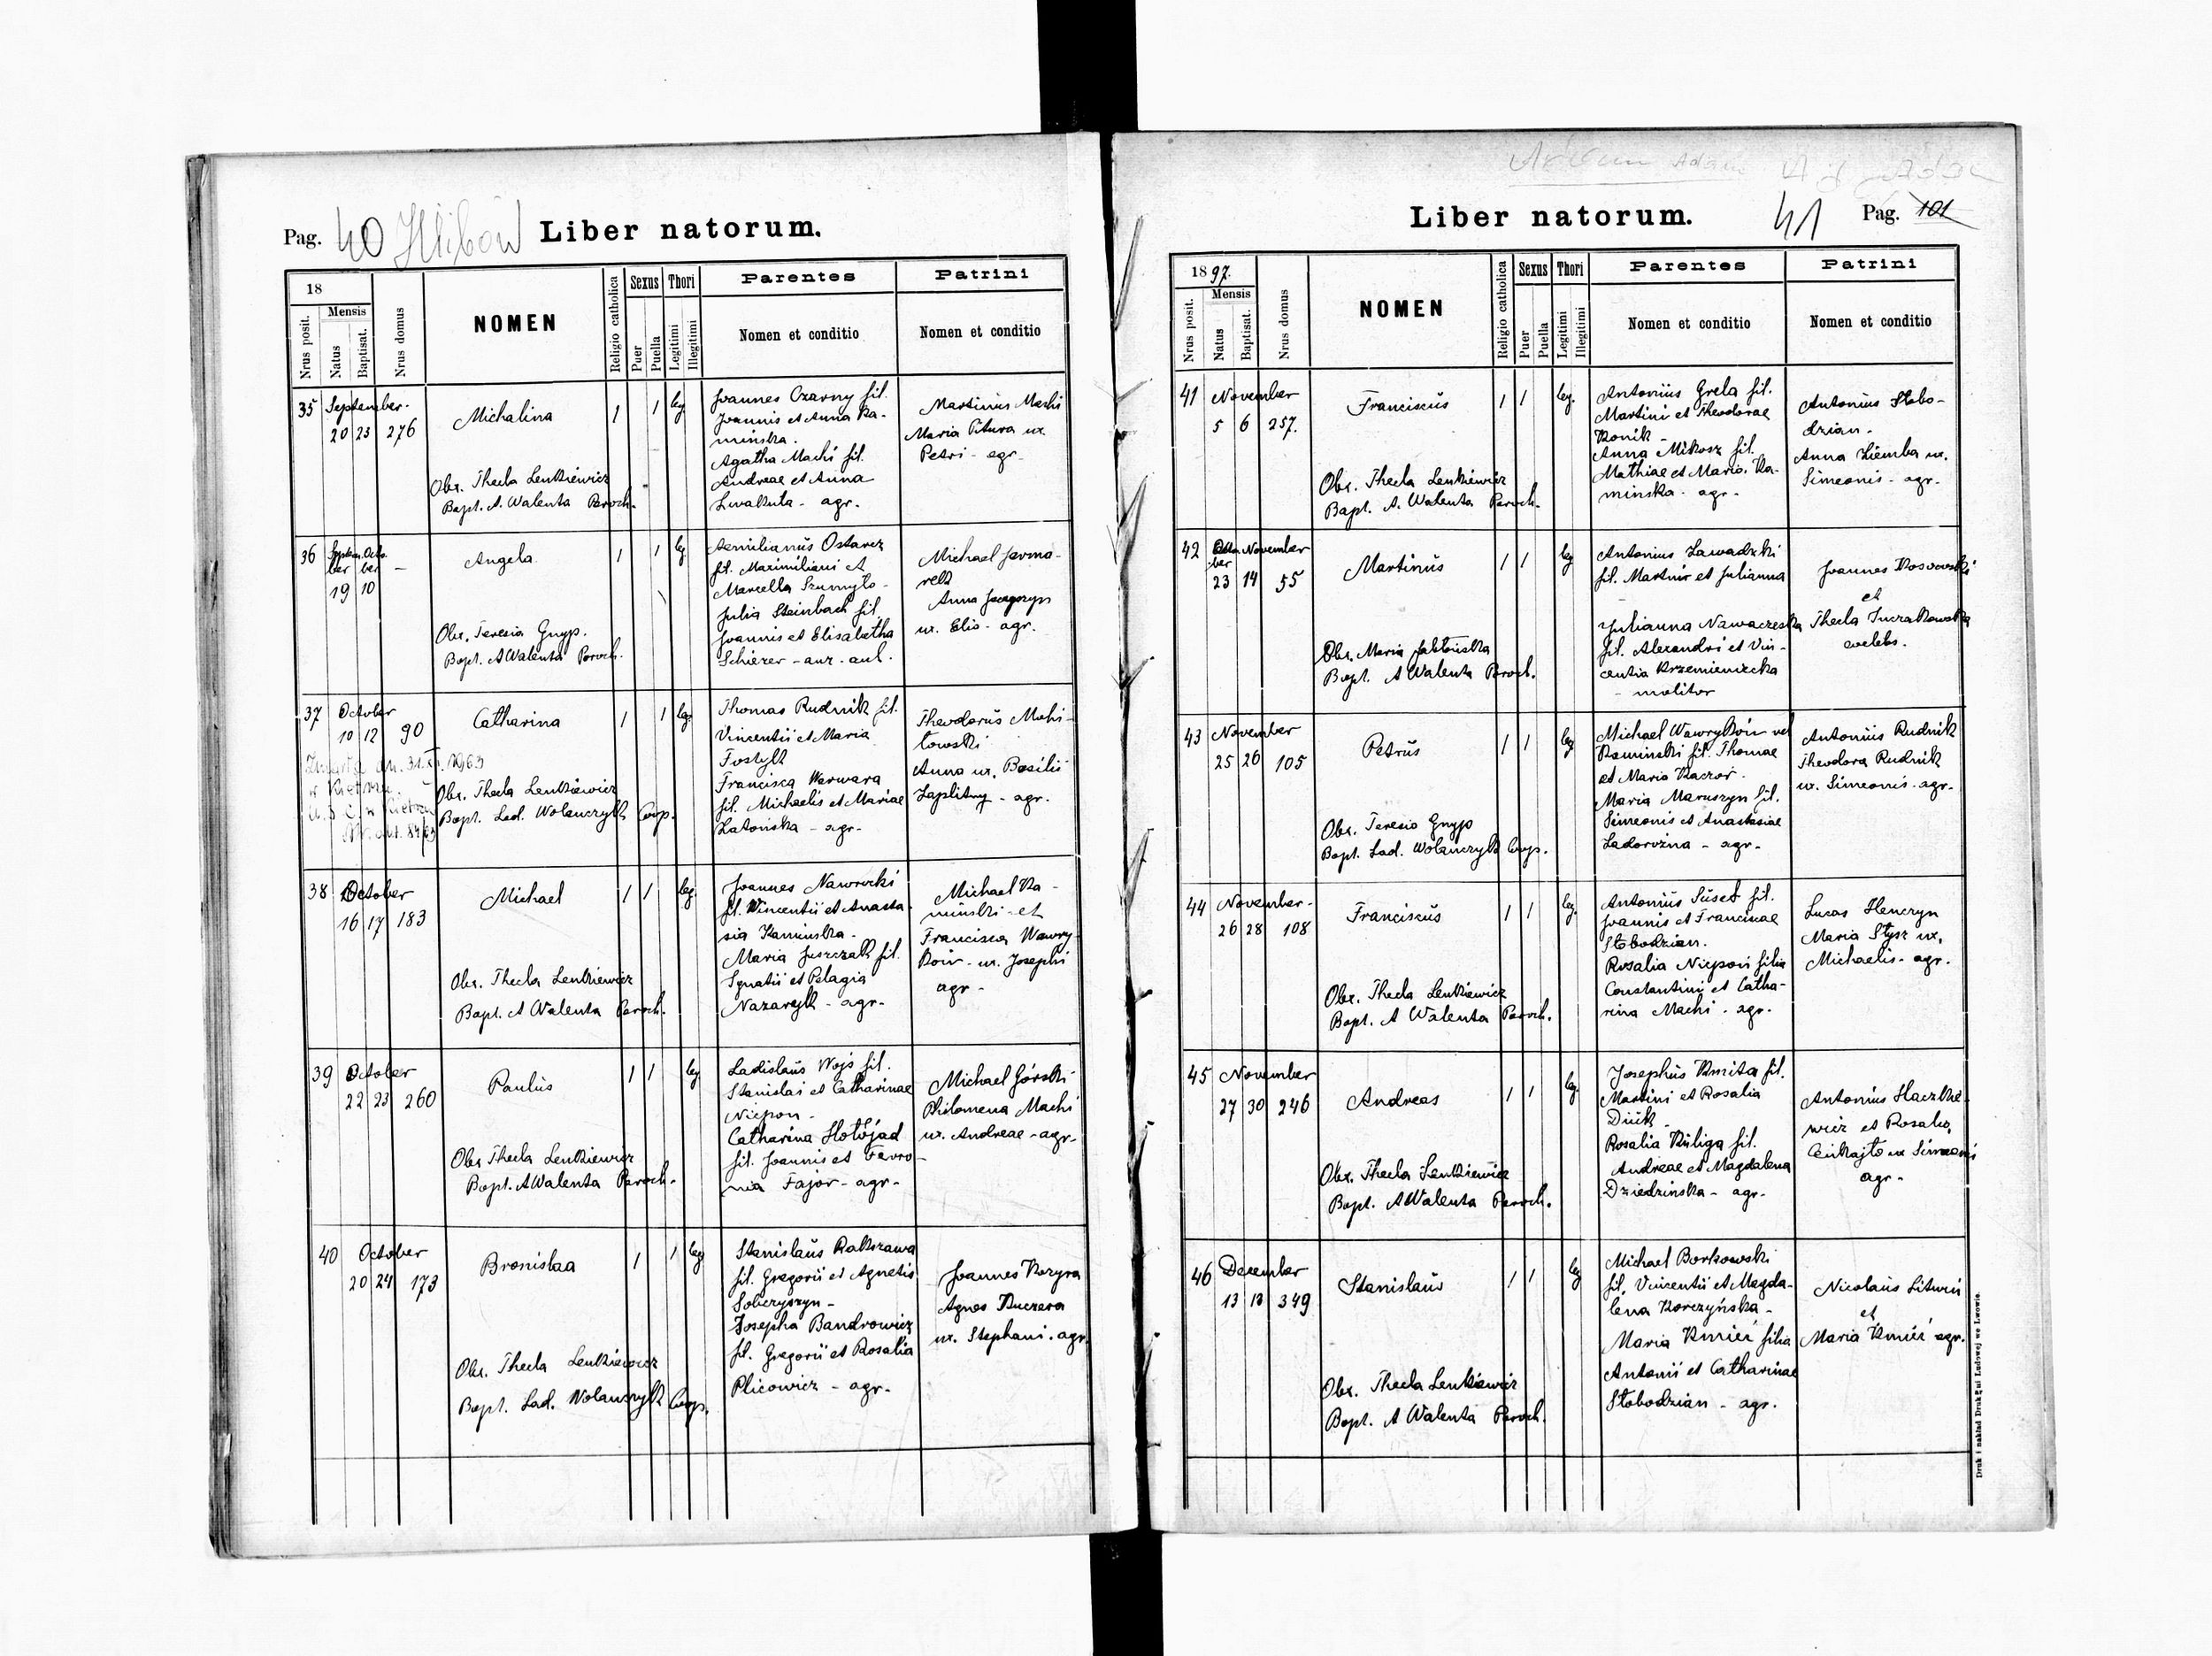 Pag. 40 Hlibów Liber natorum.
18
Nrus posit.
Mensis
Natus
Baptisat.
Nrus domus
NOMEN
Religio catholica
Sexus
Puer
Puella
Thori
Legitimi
Illegitimi
Parentes
Nomen et conditio
Patrini
Nomen et conditio
35 September
20 23 276
Michalina
1 1 leg
Obs. Thecla Lenkiewicz
Bapt. A. Walenta Paroch.
Joannes Czarny fil.
Joannis et Anna Ka-
minska.
Agatha Machi fil.
Andreae et Anna
Lwakuta - agr.
Martinus Machi
Maria Pitura ux.
Petri - agr.
36 Septem- Octo-
ber ber
19 10 -
Angela
1 1 leg
Obs. Teresia Gnyp.
Bapt. A Walenta Paroch.
Aemilianus Ostarez
fil. Maximiliani et
Marcella Szumylo -
Julia Steinbach fil.
Joannis et Elisabetha
Schierer - aur. aul.
Michael Jarmo-
relt
Anna
ux. Elio - agr.
37 October
10 12 90
Catharina
1 1 leg
Zmarła dn. 31. XI. 1963
Obs. Thecla Lenkiewicz
Bapt. Lad. Wolanczyk Coop.
Thomas Rudnik fil.
Vincentii et Maria
Fostyk
Francisca Warwara
fil. Michaelis et Mariae
Zatonska - agr.
Theodorus Mohi-
lowski
Anna ux. Basilii
Zaplitny - agr.
38 October
16 17 183
Michael
1 1 leg.
Obs. Thecla Lenkiewicz
Bapt. A Walenta Paroch.
Joannes Nawrocki
fil. Wincentii et Anasta-
sia Kaminska.
Maria Juszczak fil.
Ignatii et Pelagia
Nazaryk - agr.
Michael Ka-
minski - et
Francisca Wawry-
kow - ux. Josephi
agr -
39 October
22 23 260
Paulus
1 1 leg
Obs Thecla Lenkiewicz
Bapt. A Walenta Paroch.
Ladislaus Wojs fil.
Stanislai et Catharinae
Niepon -
Catharina Hołojad
fil. Joannis et Fevro-
nia Fajor - agr -
Michael Górski
Philomena Machi
ux. Andreae - agr.
40 October
20 24 173
Bronislaa
1 1 leg
Obs. Thecla Lenkiewicz
Bapt. Lad. Wolanczyk Coop.
Stanislaus Rakszawa
fil. Gregorii et Agnetis
Soberyszyn -
Josepha Bandrowicz
fil. Gregorii et Rosalia
Plicowicz - agr.
Joannes Kozyra
Agnes Kuczera
ux. Stephani. agr.
Liber natorum. 41 Pag. 101
1897.
Nrus posit.
Mensis
Natus
Baptisat.
Nrus domus
NOMEN
Religio catholica
Sexus
Puer
Puella
Thori
Legitimi
Illegitimi
Parentes
Nomen et conditio
Patrini
Nomen et conditio
41 November
5 6 257.
Franciscus
1 1 leg.
Obs. Thecla Lenkiewicz
Bapt. A. Walenta Paroch.
Antonius Grela fil.
Martini et Theodorae
Konik -
Anna Mikosz fil.
Mathiae et Maria Ka-
minska - agr -
Antonius Słobo-
dzian -
Anna Ziemba ux.
Simeonis - agr.
42 Octo- November
ber
23 14 55
Martinus
1 1 leg
Obs. Maria Jabłońska
Bapt. A Walenta Paroch.
Antonius Zawadzki
fil. Martini et Julianna
Julianna Nawaczeska
fil. Alexandri et Vin-
centia Krzemieniecka
- molitor
Joannes Kossowski
et
Thecla Tuczakowska
coelebs.
43 November
25 26 105
Petrus
1 1 leg
Obs. Teresia Gnyp
Bapt. Lad. Wolanczyk Coop.
Michael Wawryków vel
Kaminski fil. Thomae
et Maria Kaczor.
Maria Maruszyn fil.
Simeonis et Anastasiae
Ladorozna - agr -
Antonius Rudnik
Theodora Rudnik
ux. Simeonis. agr.
44 November.
26 28 108
Franciscus
1 1 leg.
Obs. Thecla Lenkiewicz
Bapt. A Walenta Paroch.
Antonius Suset fil.
Joannis et Franciscae
Słobodzian.
Rosalia Niepoń filia
Constantini et Catha-
rina Machi - agr.
Lucas Henczyn
Maria Stysz ux.
Michaelis - agr.
45 November
27 30 246
Andreas
1 1 leg.
Obs. Thecla Lenkiewicz
Bapt. A Walenta Paroch.
Josephus Kmita fil.
Martini et Rosalia
Diuk
Rosalia Kuliga fil.
Andreae et Magdalena
Dziedzinska - agr.
Antonius Haczke-
wicz et Rosalia
Ceńkajło ux Simeonis
agr -
46 December
13 18 349
Stanislaus
1 1 leg
Obs. Thecla Lenkiewicz
Bapt. A Walenta Paroch.
Michael Borkowski
fil. Vincentii et Magda-
lena Korczyńska -
Maria Kmieć filia
Antonii et Catharinae
Słobodzian - agr.
Nicolaus Litwin
et
Maria Kmieć agr.
Druk i nakład Drukarni Ludowej we Lwowie.